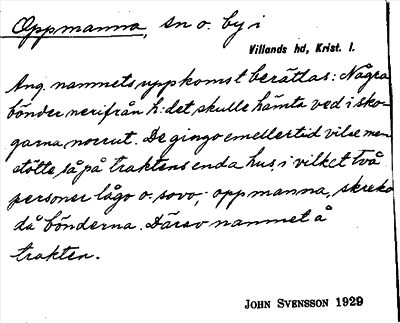 Oppmanna, sn o. by i
Villands hd, Krist. l.
Ang. namnets uppkomst berättas: Några
bönder nerifrån h:det skulle hämta ved i sko-
garna norrut. De gingo emellertid vilse men
stötte så på traktens enda hus, i vilket två
personer lågo o. sovo; opp manna, skreko
då bönderna. Därav namnet å
trakten.
JOHN SVENSSON 1929